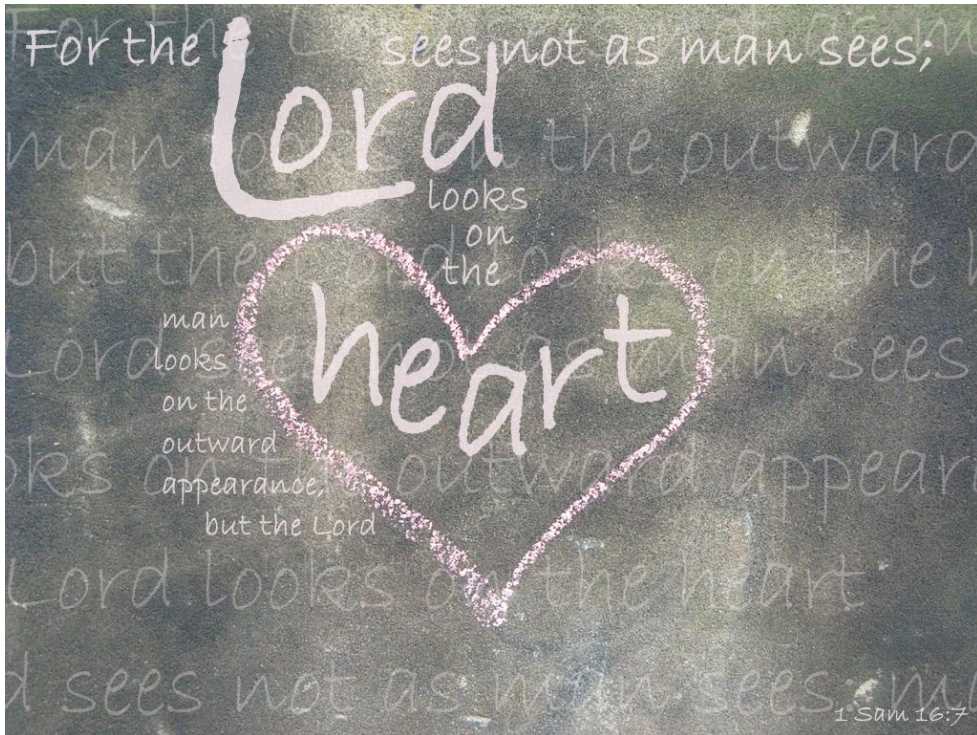 For the Lord sees not as man sees;
man
looks
on the
outward
appearance,
but the Lord
looks
on
the
heart
For the Lord sees not as m
man looks on the outward
but the Lord looks on the h
Lord sees not as man sees
oks on the outward appear
Lord looks on the heart
d sees not as man sees; ma
1 Sam 16:7